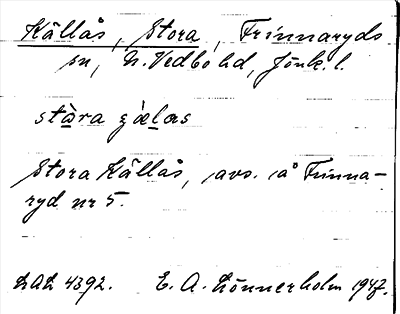 Källås, Stora, Frinnaryds
sn, N. Vedbo hd, Jönk. l.
stàra çæ̀lås
Stora Källås, avs. å Frinna-
ryd nr 5.
LAL 4392. E. A. Lönnerholm 1947.